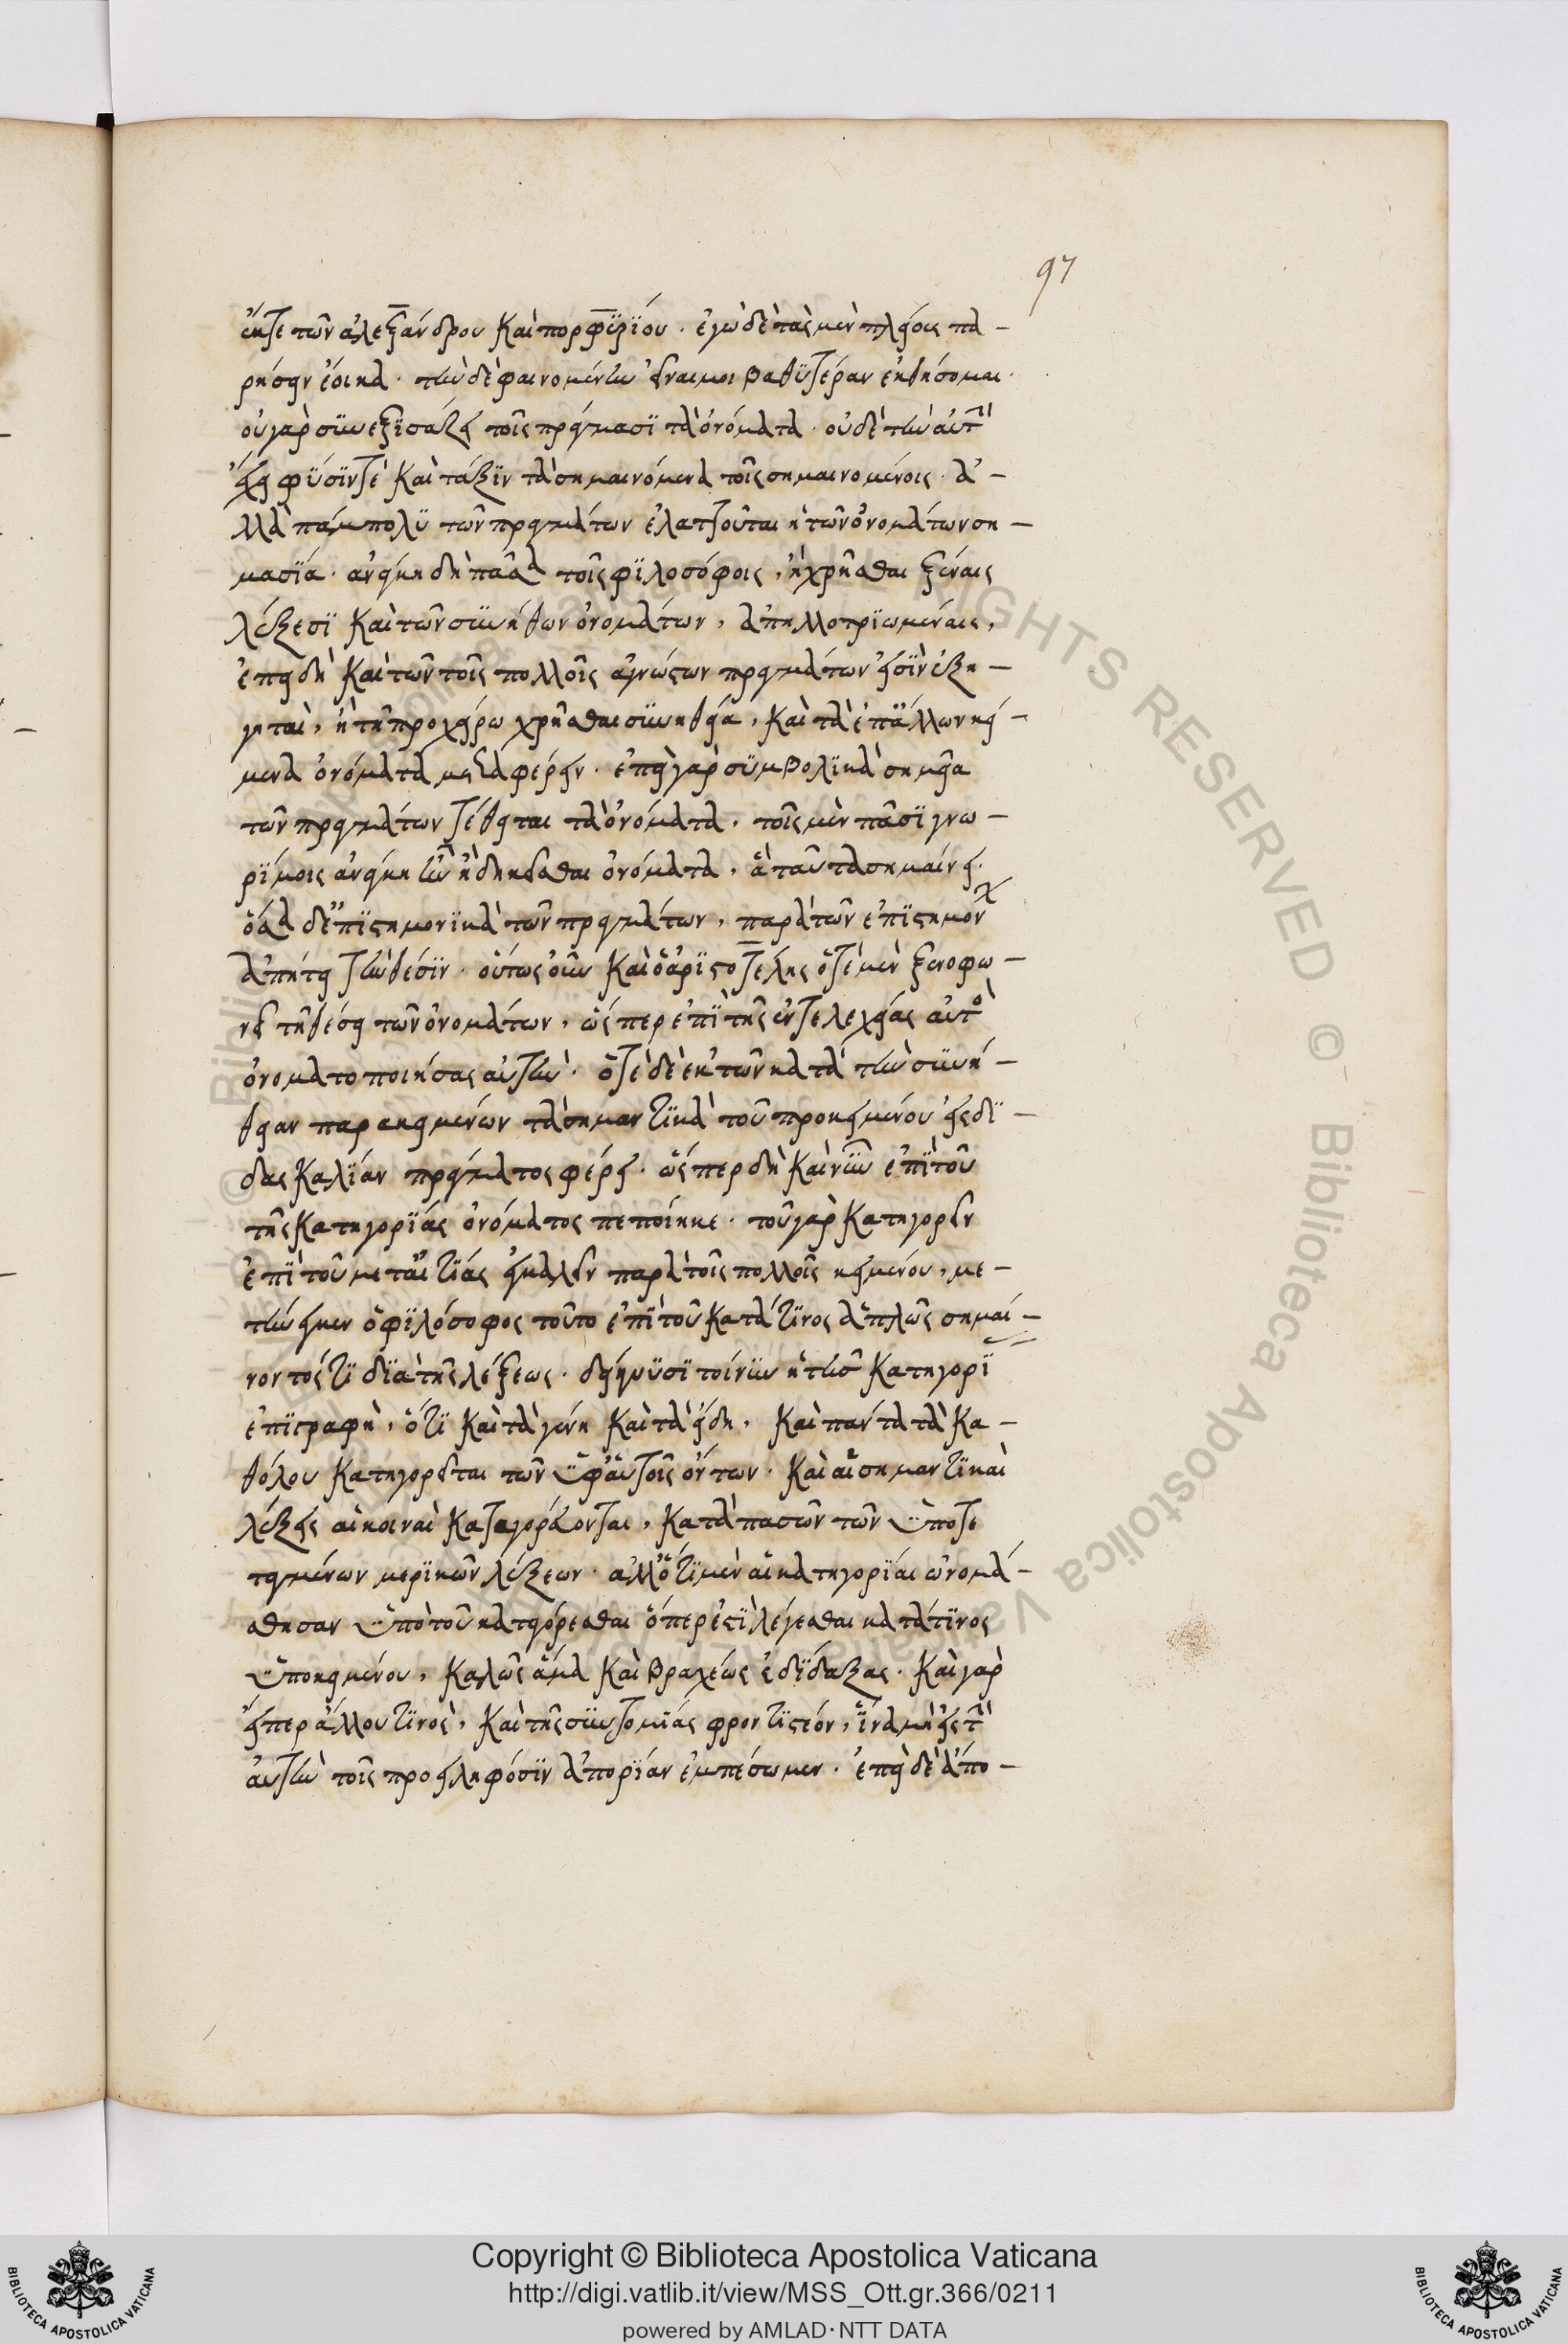 97
ἔκ τε τῶν ἀλεξάνδρου καὶ πορφϋρίου. ἐγὼ δὲ τὰς μὲν πλείους πα-
ρήσειν ἔοικα. τὴν δὲ φαινομένην εἶναι μοι βαθϋτέραν ἐκθήσομαι.
οὐ γὰρ σϋνεξϊσάζει τοῖς πράγμασϊ τὰ ὀνόματα. οὐδὲ τὴν αὐτὴν
ἔχει φϋσϊν τὲ καὶ τάξϊν τὰ σημαινόμενα τοῖς σημαινομένοις. ἀ-
λλὰ πάμπολϋ τῶν πραγμάτων ἐλαττοῦται ἡ τῶν ὀνομάτων ση-
μασϊα. ἀνάγκη δὴ πᾶσα τοῖς φϊλοσόφοις, ἢ χρῆσθαι ξέναις
λέξεσϊ καὶ τῶν σϋνήθων ὀνομάτων, ἀπηλλοτρϊωμέναις,
ἐπειδὴ καὶ τῶν τοῖς πολλοῖς ἀγνώστων πραγμάτων εἰσϊν ἐξη-
γηταὶ, ἢ τῇ προχείρω χρῆσθαι σϋνηθεία, καὶ τὰ ἐπ' ἄλλων κεί-
μενα ὀνόματα μεταφέρειν. ἐπεὶ γὰρ σϋμβολϊκὰ σημεῖα
τῶν πραγμάτων τέθειται τὰ ὀνόματα, τοῖς μὲν πᾶσϊ γνω-
ρϊμοις ἀνάγκη ἦν ἤδη κεῖσθαι ὀνόματα, ἃ ταῦτα σημαίνει.
ὅσα δ' ἐπϊστημονϊκὰ τῶν πραγμάτων, παρὰ τῶν ἐπϊστημόνων
ἀπήτει τὴν θέσϊν. οὕτως οὖν καὶ ὁ ἀρϊστοτέλης ὁτὲ μὲν ξενοφω-
νεῖ τῇ θέσει τῶν ὀνομάτων, ὥσπερ ἐπϊ τῆς ἐντελεχείας αὐτὸς
ὀνοματοποιήσας αὐτὴν. ὁτὲ δὲ ἐκ τῶν κατὰ τὴν σϋνή-
θειαν παρακειμένων τὰ σημαντϊκὰ τοῦ προκειμένου εἰς δϊ-
δασκαλϊαν πράγματος φέρει. ὥσπερ δὴ καὶ νῦν ἐπϊ τοῦ
τῆς κατηγορϊας ὀνόματος πεποίηκε. τοῦ γὰρ κατηγορεῖν
ἐπϊ τοῦ μετ' αἰτϊας ἐγκαλεῖν παρὰ τοῖς πολλοῖς κειμένου, με-
τήνεγκεν ὁ φϊλόσοφος τοῦτο ἐπϊ τοῦ κατά τϊνος ἁπλῶς σημαί-
νοντός τϊ δϊὰ τῆς λέξεως. δείκνϋσϊ τοίνϋν ἡ τῶν κατηγορϊῶν
ἐπϊγραφὴ, ὅτϊ καὶ τὰ γένη καὶ τὰ εἴδη, καὶ πάντα τὰ κα-
θόλου κατηγορεῖται τῶν ϋφ' αὑτοῖς ὄντων. καὶ αἱ σημαντϊκαὶ
λέξεις αἱ κοιναὶ καταγορεύονται, κατὰ πασῶν τῶν ϋποτε
ταγμένων μερϊκῶν λέξεων. ἀλλ' ὅτϊ μὲν αἱ κατηγορϊαι ὠνομά-
σθησαν ϋπὸ τοῦ κατηγόρεσθαι ὅπερ ἐστϊ λέγεσθαι κατά τϊνος
ϋποκειμένου, καλῶς ἅμα καὶ βραχέως ἐδϊδαξας. καὶ γὰρ
εἴπερ ἄλλου τϊνὸς, καὶ τῆς σϋντομϊας φροντϊστέον, ἵνα μὴ εἰς τὴν
αὐτὴν τοῖς προειληφόσϊν ἀπορϊαν ἐμπέσωμεν. ἐπεὶ δὲ ἀπο-
Copyright © Biblioteca Apostolica Vaticana
http://digi.vatlib.it/view/MSS_Ott.gr.366/0211
powered by AMLAD·NTT DATA